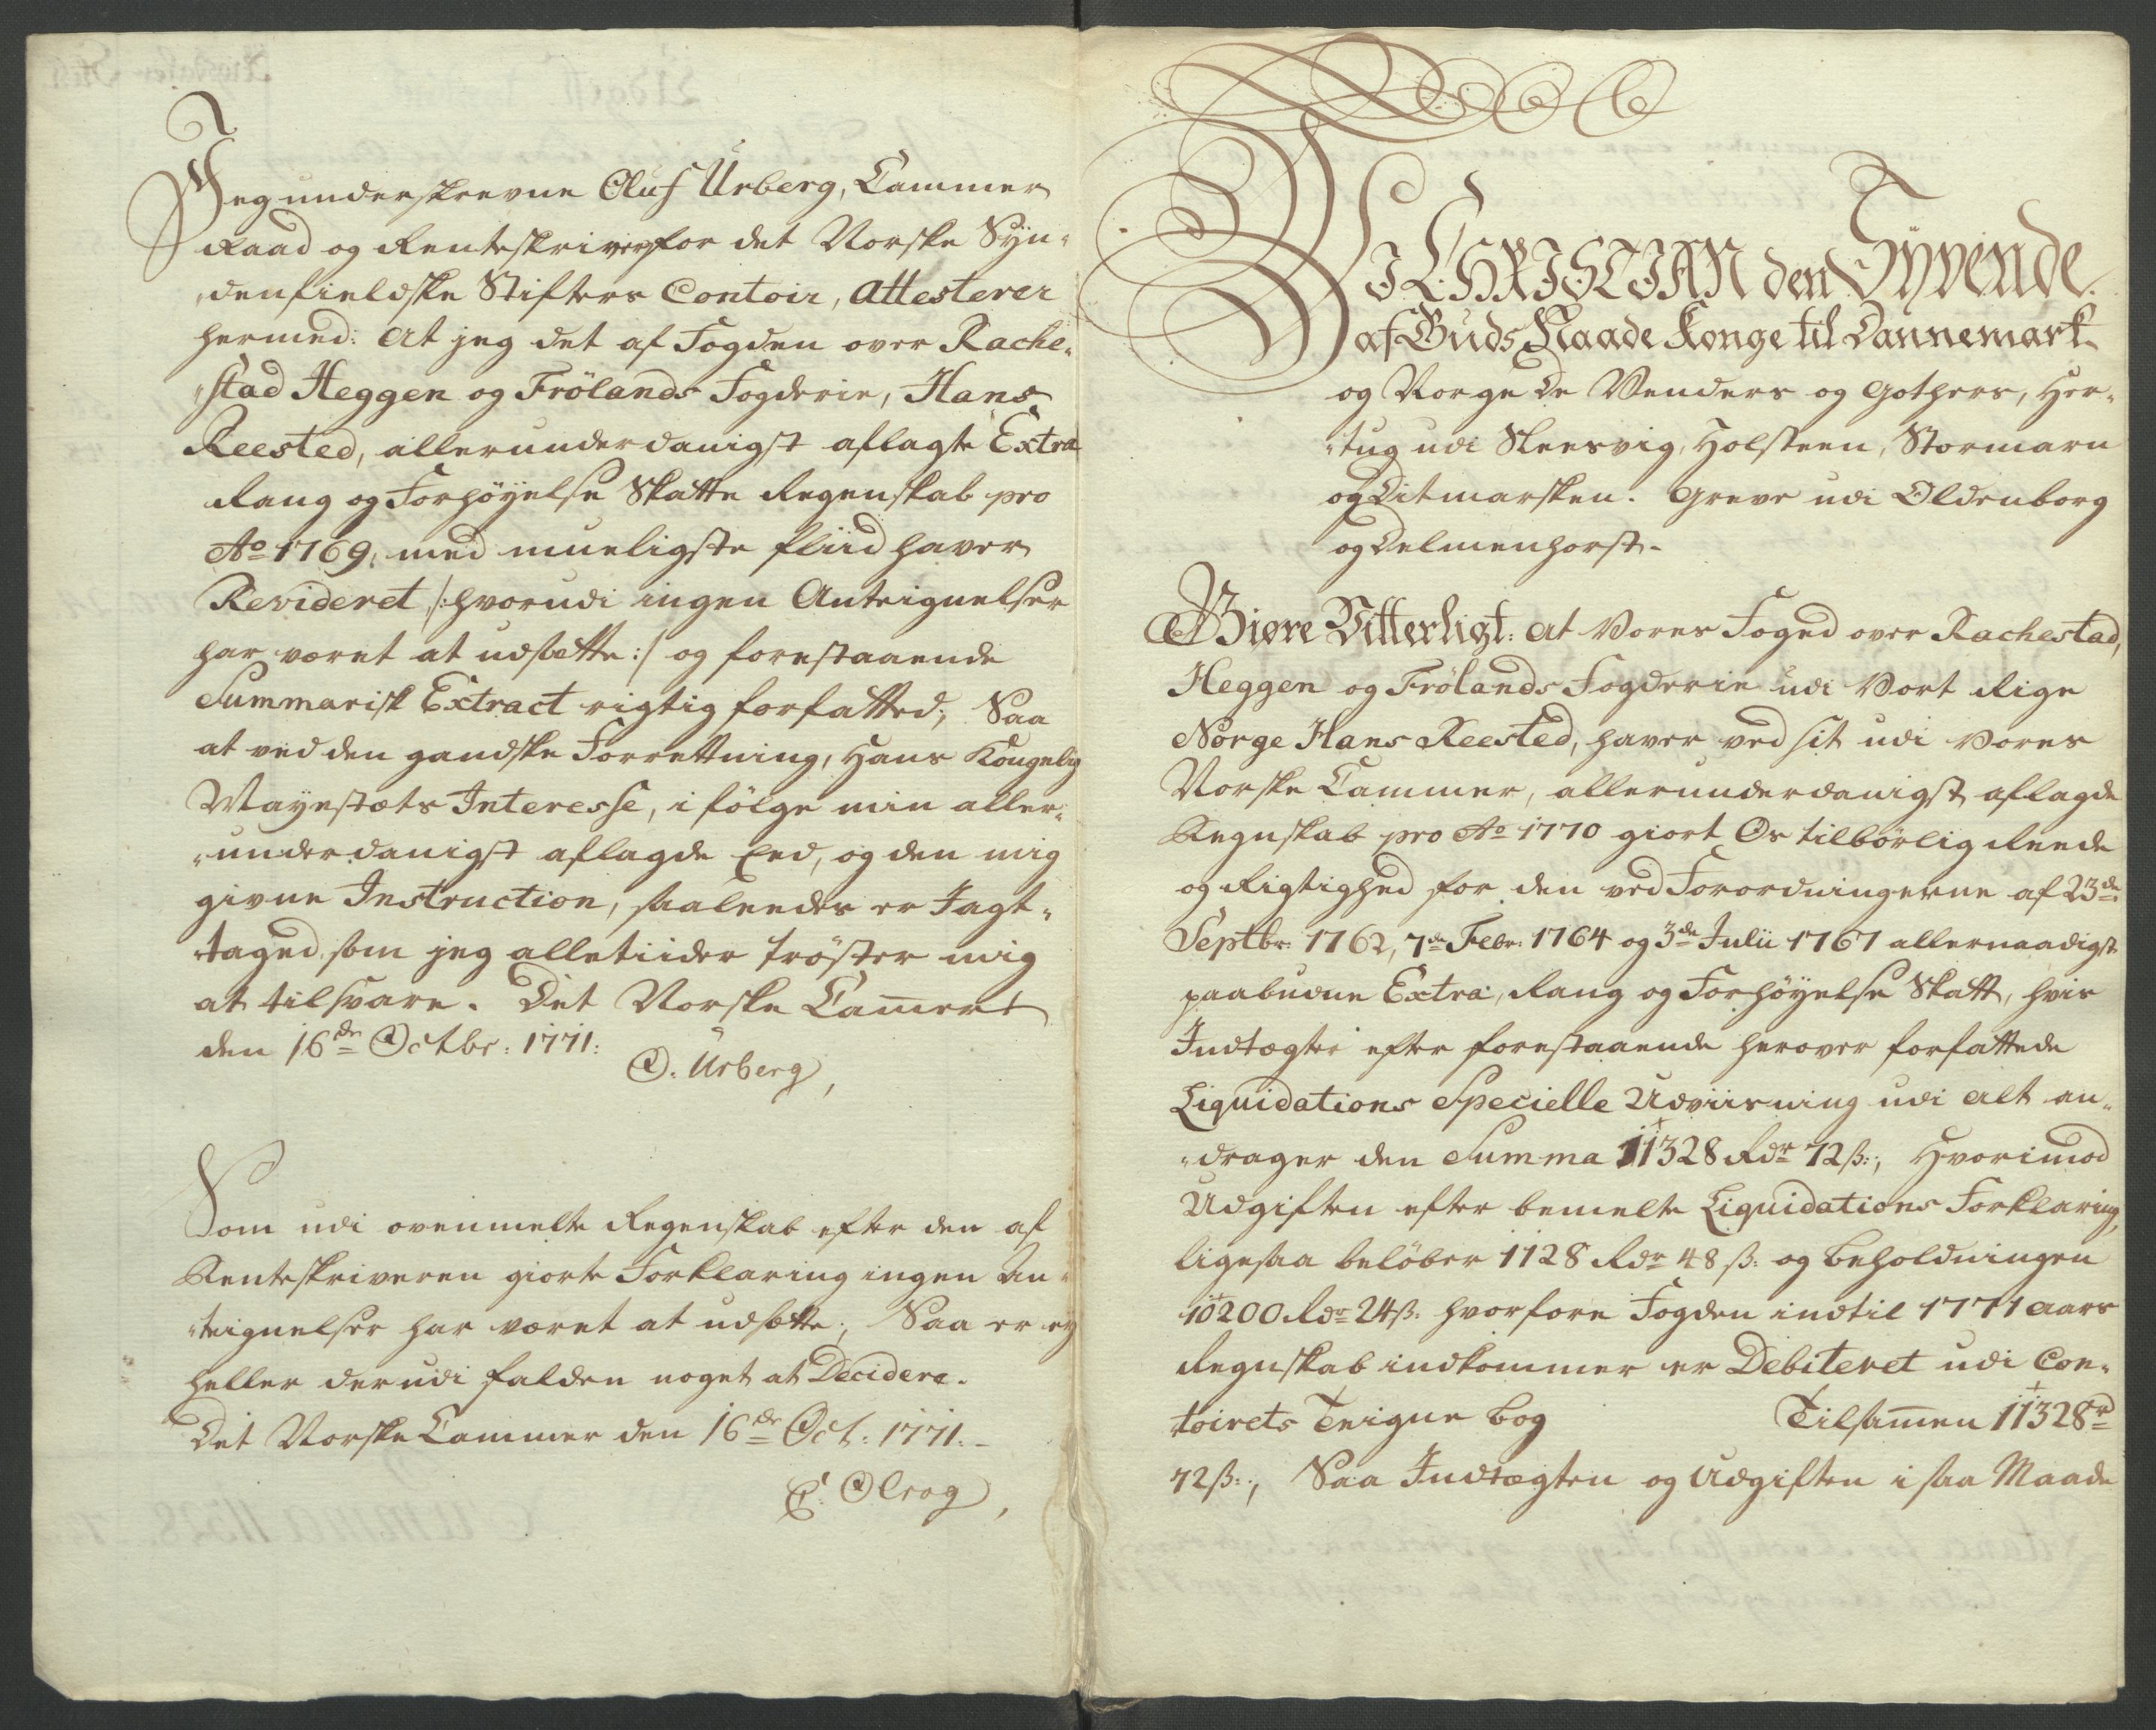 Jeg underskrevne Oluf Urberg, Cammer
Raad og Renteskriver for det Norske Syn„
„denfieldske Stifters Contoir, Attesterer
hermed: At jeg det af Fogden over Rache„
„stad Heggen og Frölands Fogderie, Hans
Reested, allerunderdanigst aflagte Extra
Rang og Forhöyelse Skatte Regenskab pro
Ao 1769, med mueligste fliid haver
Revideret /: hvorudi ingen Anteignelser
har været at udsætte :/ og forestaaende
Summarisk Extract rigtig forfatted; Saa
at ved den gandske Forrettning, Hans Kongelig
Mayestæts Interesse, i fölge min aller„
„underdanigst aflagde Eed, og den mig
givne Instruction, saaleedes er Jagt„
„taged som jeg alletiider tröster mig
at tilsvare. Det Norske Cam̄ert
den 16de Octbr: 1771:
O. Urberg,
Som udi ovenmelte Regenskab efter den af
Renteskriveren giorte Forklaring ingen An„
„teignelser har været at udsætte; Saa er ey
heller derudi falden noget at Decidere.
Det Norske Cammer den 16de Oct: 1771.-
C: Olrog,
VI CHRISTIAN den Syvende.
af Guds Naade Konge til Dannemark
og Norge De Venders og Gothers, Her„
„tug udi Sleesvig, Holsteen, Stormarn
og Ditmarsken. Greve udi Oldenborg
og Delmenhorst.
Giøre Vitterligt: At Vores Foged over Rachestad,
Heggen og Frölands Fogderie udi Vort Rige
Norge Hans Reested, haver ved sit udi Vores
Norske Cammer, allerunderdanigst aflagde
Regnskab pro Ao 1770 giort Os tilbörlig Reede
og Rigtighed for den ved Forordningerne af 23de
Septbr: 1762, 7de Febr: 1764 og 3de Julii 1767 allernaadigst
paabudne Extra, Rang og Forhöyelse Skatt, hvis
Indtægter efter forestaaende herover forfattede
Liquidations Specielle Udviisning udi alt an„
„drager den Summa 11328 Rdr 72 ß:, Hvorimod
Udgiften efter bemelte Liquidations Forklaring,
ligesaa belöber 1128 Rdr 48 ß: og beholdningen
10200 Rdr 24 ß: hvorfore Fogden indtil 1771 Aars
Regnskab indkommer er Debiteret udi Con„
toirets Teigne bog Tilsam̄en 11328 rd
72 ß:, Saa Indtægten og Udgiften i saa Maade